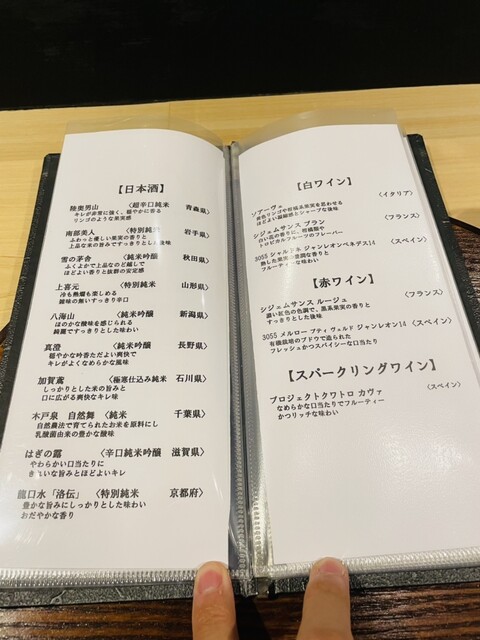 【日本酒】
陸奥男山 〈超辛口純米 青森県〉
キレが非常に強く、穏やかに香る
リンゴのような果実感
南部美人 〈特別純米 岩手県〉
ふわっと優しい果実の香りと
上品な米の旨みですっきりとした後味
雪の茅舎 〈純米吟醸 秋田県〉
ふくよかで上品なのど越しで
ほどよい香りと抜群の安定感
上喜元 〈特別純米 山形県〉
冷も熱燗も楽しめる
雑味の無いすっきり辛口
八海山 〈純米吟醸 新潟県〉
ほのかな酸味を感じられる
綺麗ですっきりとした味わい
真澄 〈純米吟醸 長野県〉
穏やかな吟香ただよい爽快で
キレがよくなめらかな風味
加賀鳶 〈極寒仕込み純米 石川県〉
しっかりとした米の旨みと
口に広がる爽快なキレ味
木戸泉 自然舞 〈純米 千葉県〉
自然農法で育てられたお米を原料にし
乳酸菌由来の豊かな酸味
はぎの露 〈辛口純米吟醸 滋賀県〉
やわらかい口当たりに
きれいな旨みとほどよいキレ
龍口水「洛伝」 〈特別純米 京都府〉
豊かな旨みにしっかりとした味わい
おだやかな香り
【白ワイン】
ソアーヴェ 〈イタリア〉
黄色リンゴや柑橘系果実を思わせる
ほどよい凝縮感とシャープな後味
シジェムサンス ブラン 〈フランス〉
白い花の香りに、柑橘類や
トロピカルフルーツのフレーバー
3055 シャルドネ ジャンレオンペネデス14 〈スペイン〉
熟した果実の豊潤な香りと
フルーティーな味わい
【赤ワイン】
シジェムサンス ルージュ 〈フランス〉
濃い紅色の色調で、黒系果実の香りと
すっきりとした後味
3055 メルロー プティ ヴェルド ジャンレオン14 〈スペイン〉
有機栽培のブドウで造られる
フレッシュかつスパイシーな口当たり
【スパークリングワイン】
プロジェクトクワトロ カヴァ 〈スペイン〉
なめらかな口当たりでフルーティー
かつリッチな味わい